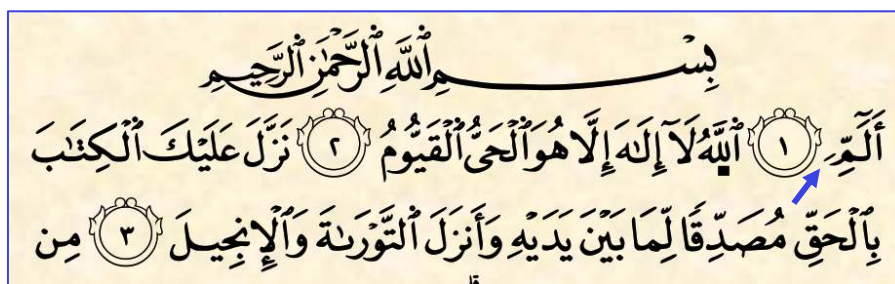 بِسْمِ ٱللَّهِ ٱلرَّحْمَٰنِ ٱلرَّحِيمِ
أَلَٓمِّٓ َ ١ ٱللَّهُ لَآ إِلَٰهَ إِلَّا هُوَ ٱلْحَيُّ ٱلْقَيُّومُ ٢ نَزَّلَ عَلَيْكَ ٱلْكِتَٰبَ
بِٱلْحَقِّ مُصَدِّقًا لِّمَا بَيْنَ يَدَيْهِ وَأَنزَلَ ٱلتَّوْرَىٰةَ وَٱلْإِنجِيلَ ٣ مِن